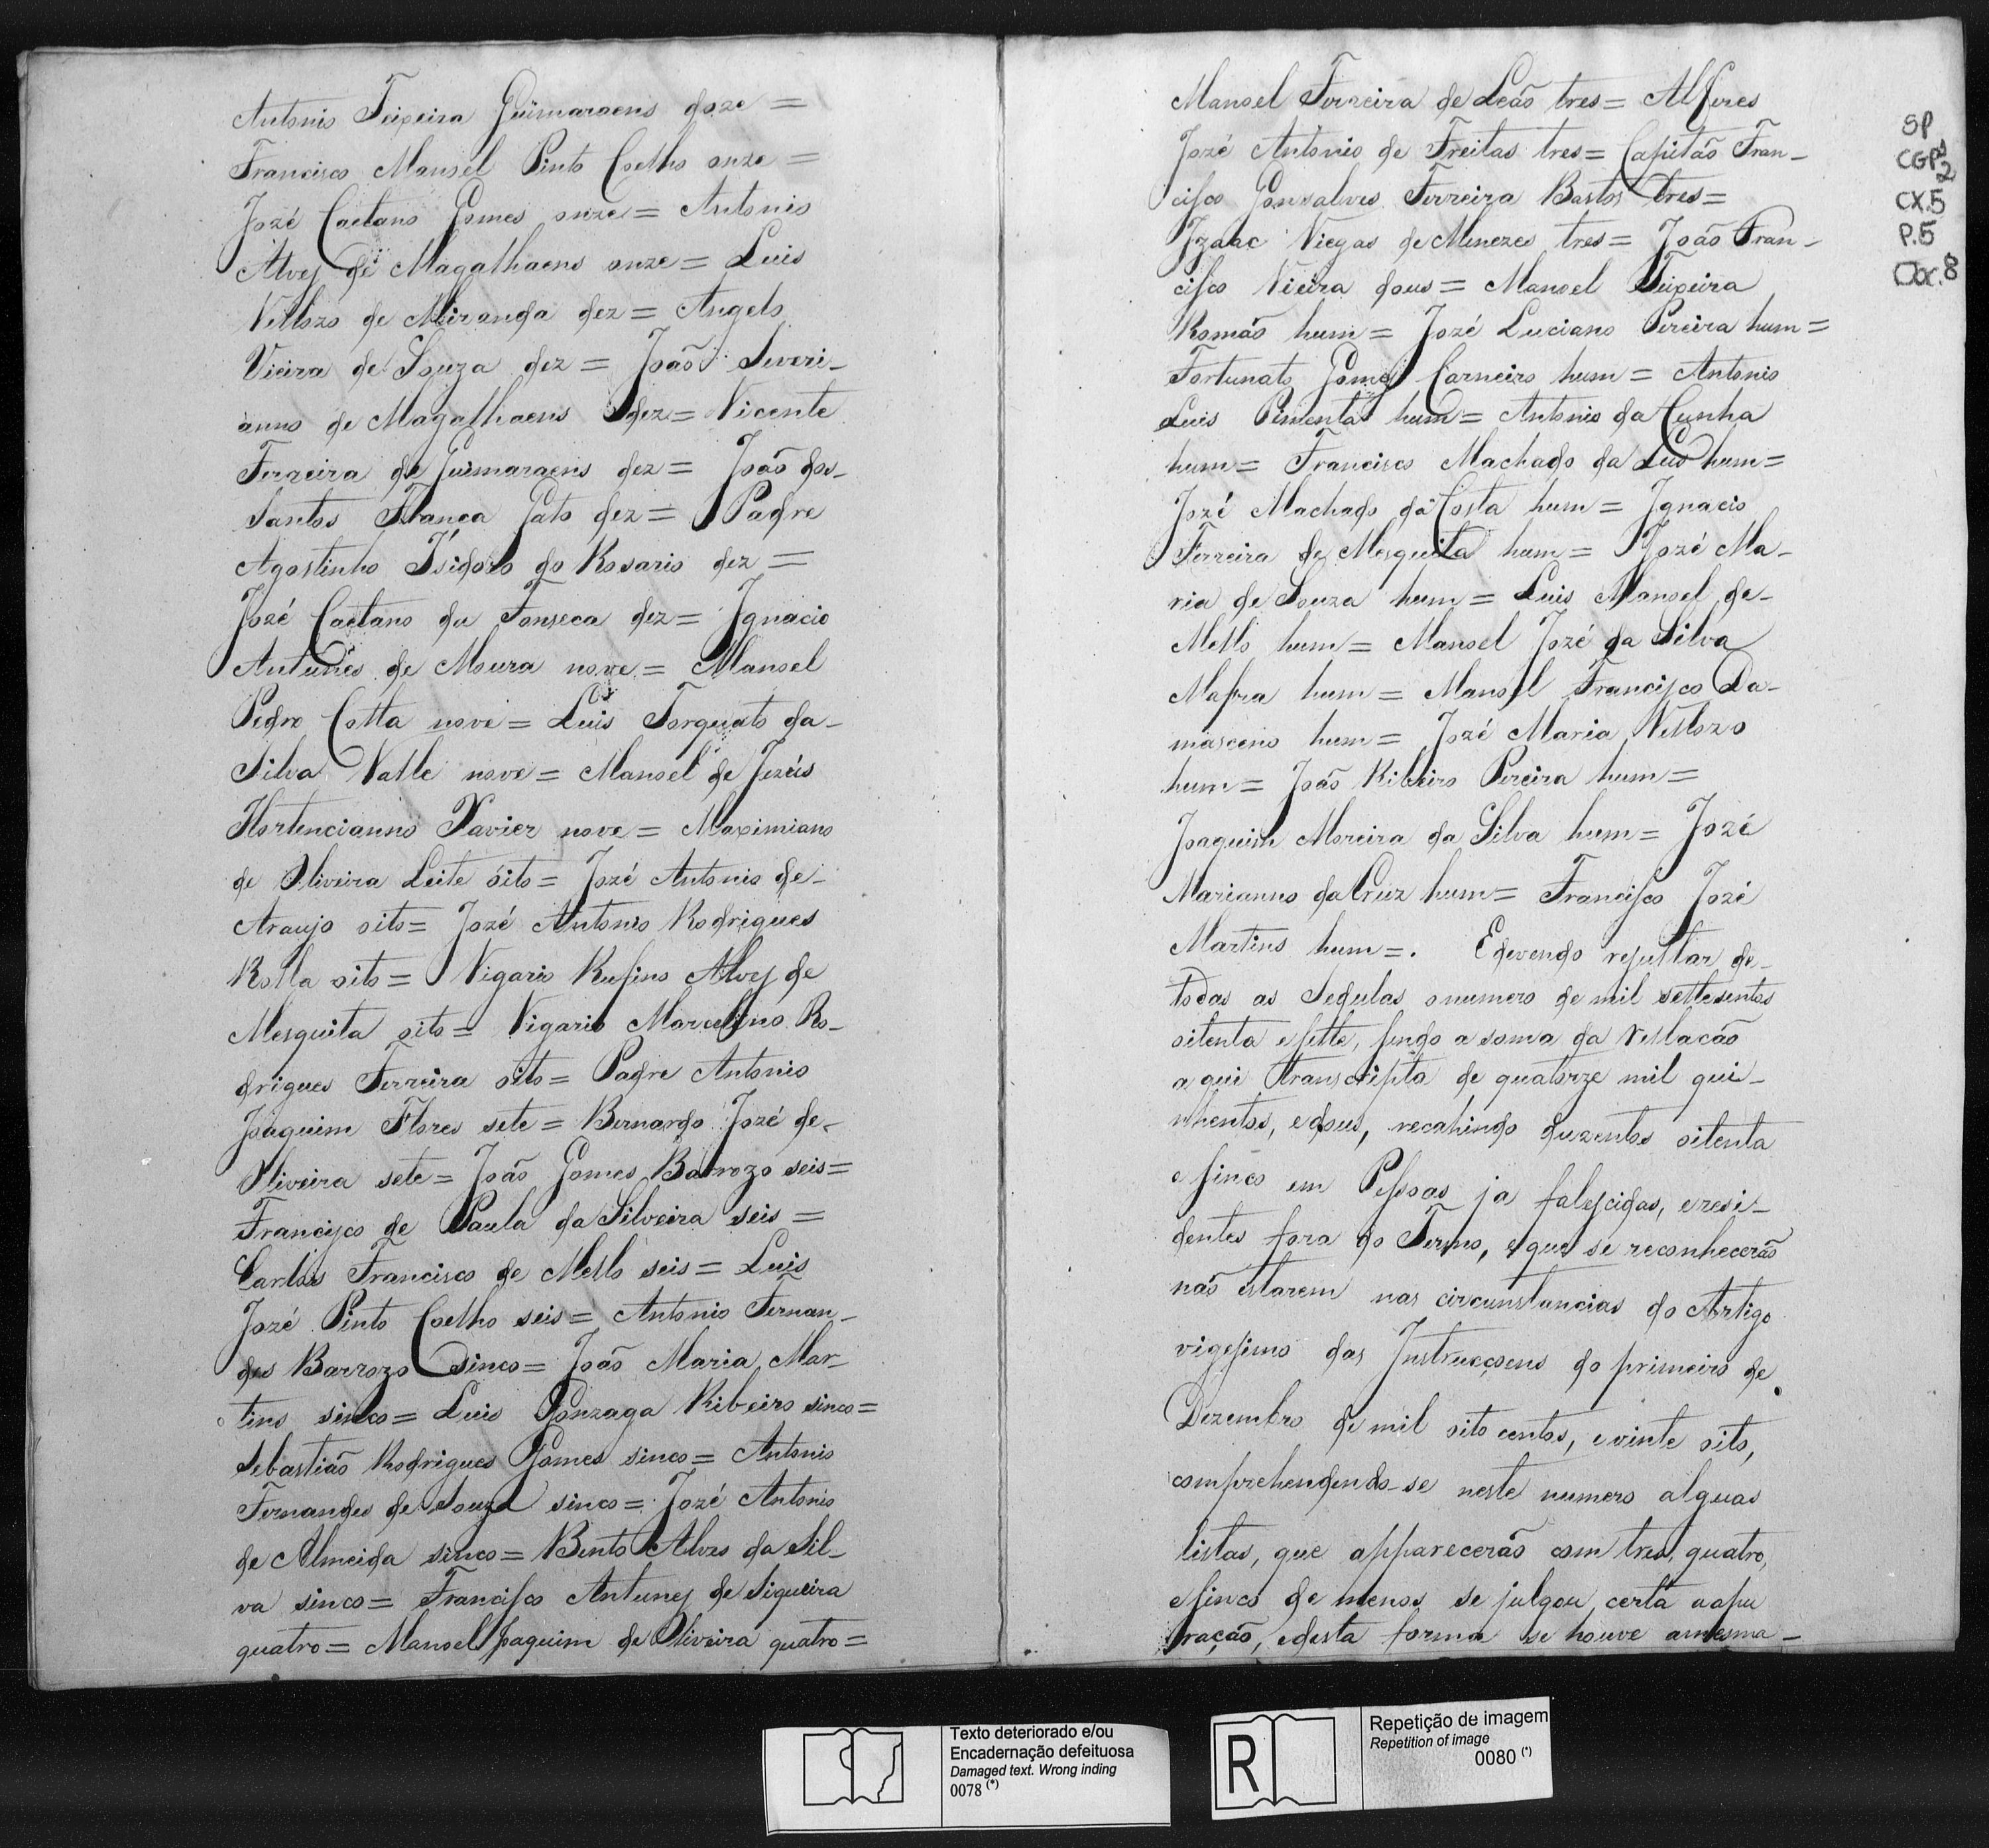 Antonio Teixeira Guimaraens doze =
Francisco Manoel Pinto Coelho onze =
Jozé Caetano Gomes onze = Antonio
Alves de Magalhaens onze = Luis
Vellozo de Miranda dez = Angelo
Vieira de Souza dez = João Severi-
anno de Magalhaens dez = Vicente
Ferreira de Guimaraens dez = João dos-
Santos França Gato dez = Padre
Agostinho Isidoro do Rosario dez =
Jozé Caetano da Fonseca dez = Ignacio
Antunes de Moura nove = Manoel
Pedro Cotta nove = Luis Torquato da-
Silva Valle nove = Manoel de Jezús
Hortencianno Xavier nove = Maximiano
de Oliveira Leite oito = Jozé Antonio de-
Araujo oito = Jozé Antonio Rodrigues
Rolla oito = Vigario Rufino Alves de
Mesquita oito = Vigario Marcelino Ro-
drigues Ferreira oito = Padre Antonio
Joaquim Flores sete = Bernardo Jozé de-
Oliveira sete = João Gomes Barrozo seis =
Francisco de Paula da Silveira seis =
Carlos Francisco de Mello seis = Luis
Jozé Pinto Coelho seis = Antonio Fernan-
des Barrozo sinco = João Maria Mar-
tins sinco = Luis Gonzaga Ribeiro sinco =
Sebastião Rodrigues Gomes sinco = Antonio
Fernandes de Souza sinco = Jozé Antonio
de Almeida sinco = Bento Alves da Sil-
va sinco = Francisco Antunes de Siqueira
quatro = Manoel Joaquim de Oliveira quatro =
Manoel Ferreira de Leão tres = Alferes
Jozé Antonio de Freitas tres = Capitão Fran-
cisco Gonsalves Ferreira Bastos tres =
Izaac Viegas de Menezes tres = João Fran-
cisco Vieira dous = Manoel Teixeira
Romão hum = Jozé Luciano Pereira hum =
Fortunato Gomes Carneiro hum = Antonio
Luis Pimenta hum = Antonio da Cunha
hum = Francisco Machado da Luz hum =
Jozé Machado da Costa hum = Ignacio
Ferreira de Mesquita hum = Jozé Ma-
ria de Souza hum = Luis Manoel de-
Mello hum = Manoel Jozé da Silva
Mafra hum = Manoel Francisco Da-
masceno hum = Jozé Maria Vellozo
hum = João Ribeiro Pereira hum =
Joaquim Moreira da Silva hum = Jozé
Marianno da Cruz hum = Francisco Jozé
Martins hum =. E devendo resultar de-
todas as Sedulas o numero de mil settesentos
oitenta e sette, sendo a soma da Rellacão
aqui transcripta de quatorze mil qui-
nhentos, e dous, recahindo duzentos oitenta
e sinco em Pessoas ja falescidas, e resi-
dentes fora do Termo, e que se reconhecerão
não estarem nas circunstancias do Artigo
vigesimo das Instrucçoens do primeiro de
Dezembro de mil oito centos, e vinte oito,
comprehendendo-se neste numero alguas
listas, que apparecerão com tres, quatro,
e sinco de menos se julgou certa a apu
ração, e desta forma se houve a mesma -
SP
CGP 1
2
CX.5
P.5
Doc. 8
Texto deteriorado e/ou
Encadernação defeituosa
Damaged text. Wrong inding
0078 (*)
R
Repetição de imagem
Repetition of image
0080 (*)